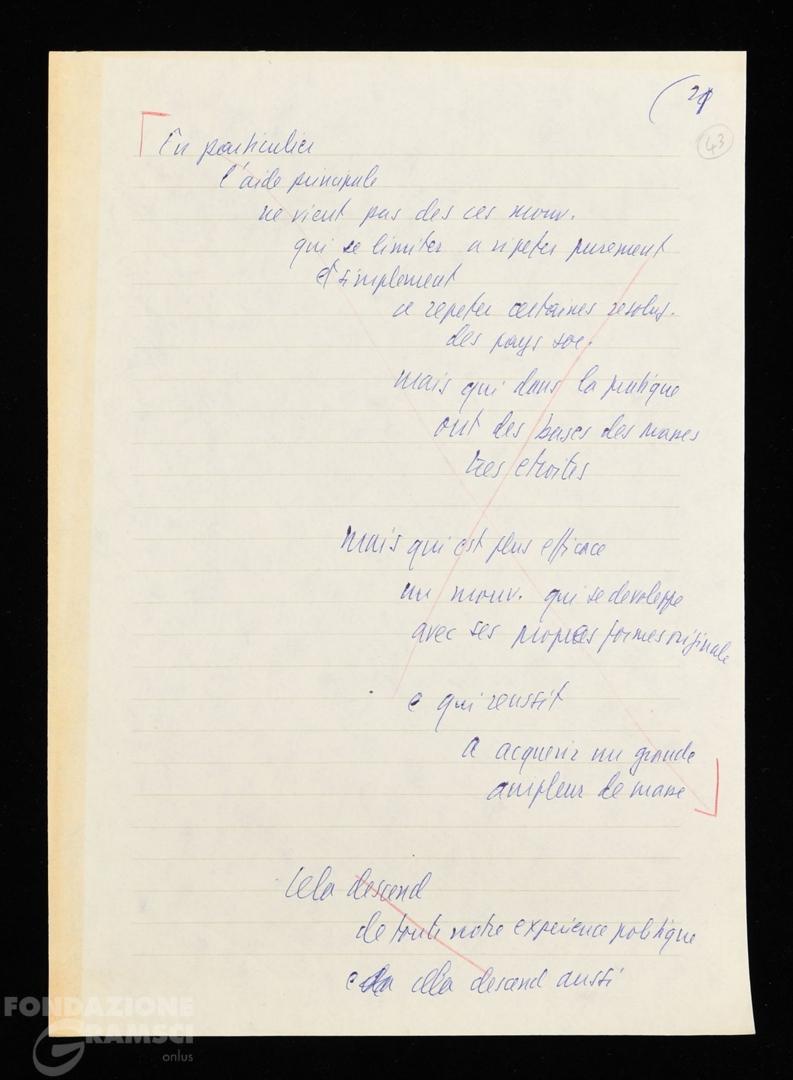 (21
43
En particulier
l'aide principale
ne vient pas des ces mouv.
qui se limiter a ripeter purement
et simplement
a repeter certaines resolus.
des pays soc.
mais qui dans la pratique
ont des bases des masses
tres etroites
mais qui est plus efficace
un mouv. qui se develeppe
avec ses propres formes originale
e qui reussit
a acquerir un grande
ampleur de masse
Cela descend
de toute notre experience politique
cela descend aussi
FONDAZIONE
GRAMSCI
onlus